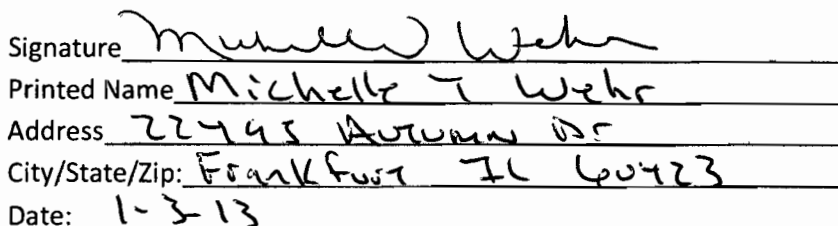 Signature Michelle Wehr
Printed Name Michelle T Wehr
Address 22495 Autumn Dr
City/State/Zip: Frankfort IL 60423
Date: 1-3-13